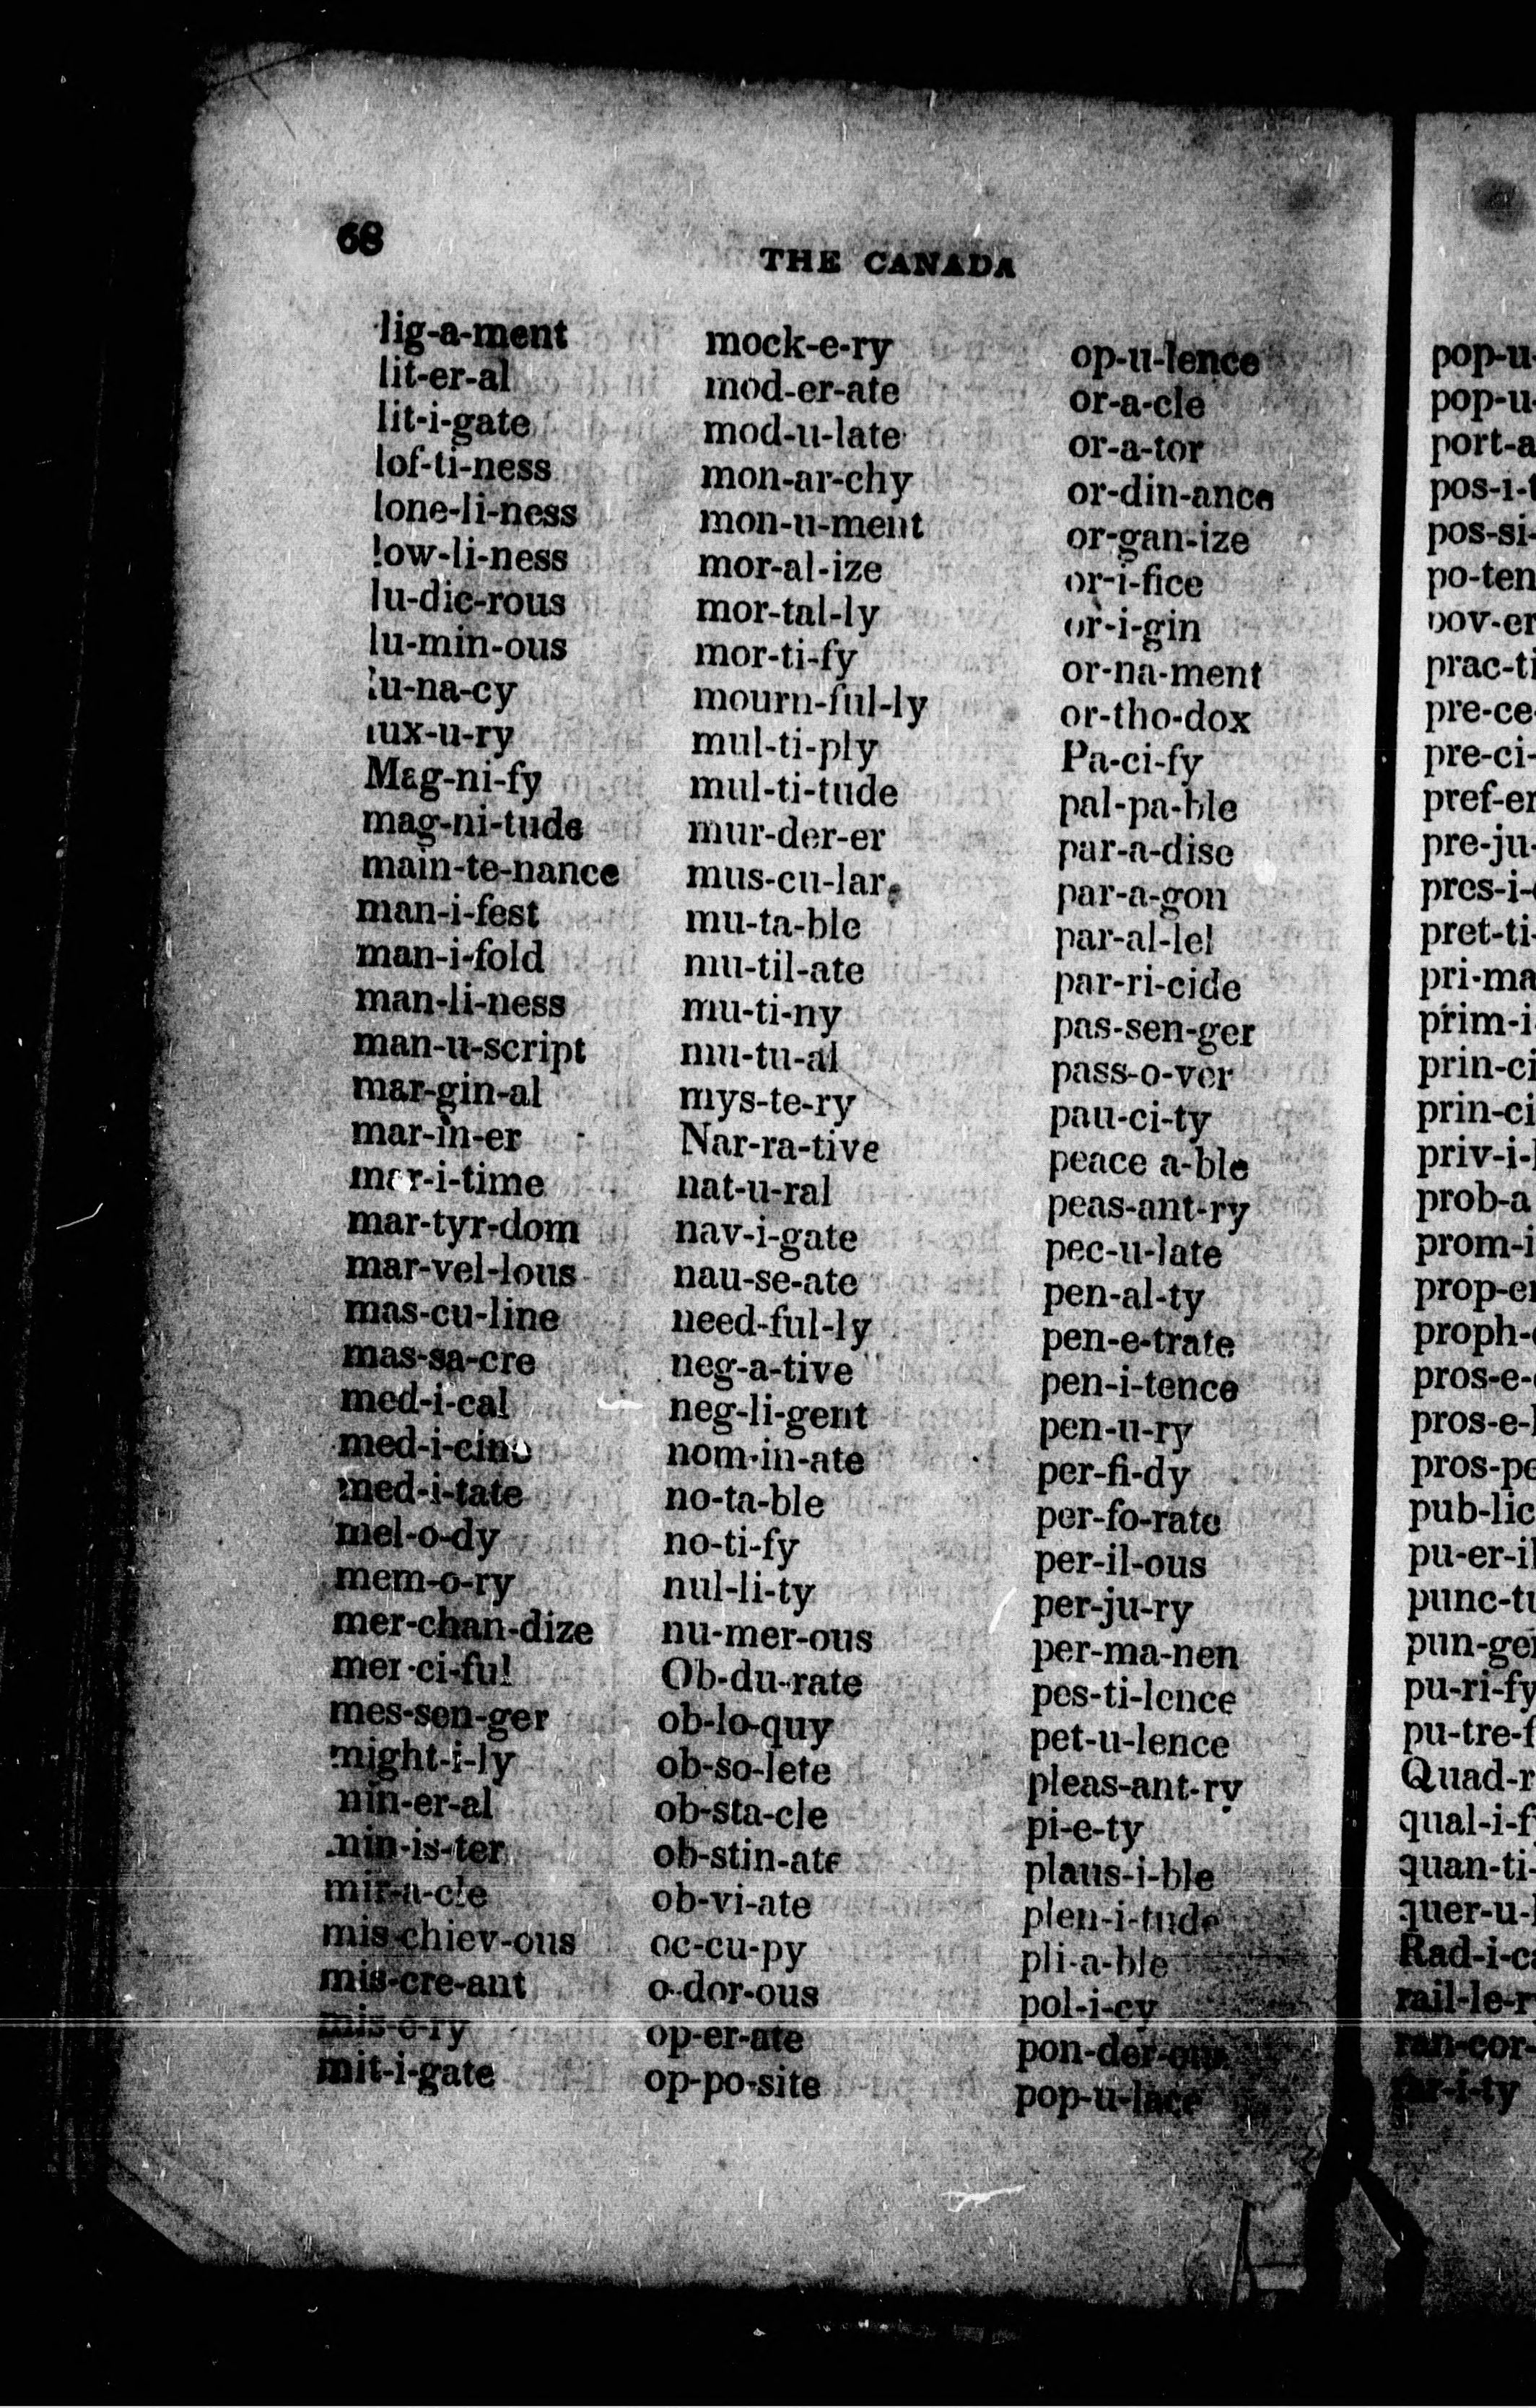 68
THE CANADA
lig-a-ment
lit-er-al
lit-i-gate
lof-ti-ness
lone-li-ness
low-li-ness
lu-dic-rous
lu-min-ous
lu-na-cy
lux-u-ry
Mag-ni-fy
mag-ni-tude
main-te-nance
man-i-fest
man-i-fold
man-li-ness
man-u-script
mar-gin-al
mar-in-er
mar-i-time
mar-tyr-dom
mar-vel-lous
mas-cu-line
mas-sa-cre
med-i-cal
med-i-cine
med-i-tate
mel-o-dy
mem-o-ry
mer-chan-dize
mer-ci-ful
mes-sen-ger
might-i-ly
min-er-al
min-is-ter
mir-a-cle
mis-chiev-ous
mis-cre-ant
mis-e-ry
mit-i-gate
mock-e-ry
mod-er-ate
mod-u-late
mon-ar-chy
mon-u-ment
mor-al-ize
mor-tal-ly
mor-ti-fy
mourn-ful-ly
mul-ti-ply
mul-ti-tude
mur-der-er
mus-cu-lar
mu-ta-ble
mu-til-ate
mu-ti-ny
mu-tu-al
mys-te-ry
Nar-ra-tive
nat-u-ral
nav-i-gate
nau-se-ate
need-ful-ly
neg-a-tive
neg-li-gent
nom-in-ate
no-ta-ble
no-ti-fy
nul-li-ty
nu-mer-ous
Ob-du-rate
ob-lo-quy
ob-so-lete
ob-sta-cle
ob-stin-ate
ob-vi-ate
oc-cu-py
o-dor-ous
op-er-ate
op-po-site
op-u-lence
or-a-cle
or-a-tor
or-din-ance
or-gan-ize
or-i-fice
or-i-gin
or-na-ment
or-tho-dox
Pa-ci-fy
pal-pa-ble
par-a-dise
par-a-gon
par-al-lel
par-ri-cide
pas-sen-ger
pass-o-ver
pau-ci-ty
peace a-ble
peas-ant-ry
pec-u-late
pen-al-ty
pen-e-trate
pen-i-tence
pen-u-ry
per-fi-dy
per-fo-rate
per-il-ous
per-ju-ry
per-ma-nen
pes-ti-lence
pet-u-lence
pleas-ant-ry
pi-e-ty
plaus-i-ble
plen-i-tude
pli-a-ble
pol-i-cy
pon-der-ous
pop-u-lace
pop-u-
pop-u-
port-a
pos-i-t
pos-si-
po-ten
pov-er
prac-ti
pre-ce-
pre-ci-
pref-er
pre-ju-
pres-i-
pret-ti-
pri-ma
prim-i-
prin-ci
prin-ci
priv-i-
prob-a
prom-i
prop-er
proph-
pros-e-
pros-e-
pros-pe
pub-lic
pu-er-il
punc-tu
pun-ge
pu-ri-fy
pu-tre-f
Quad-r
qual-i-f
quan-ti-
quer-u-
Rad-i-ca
rail-le-r
ran-cor-
rar-i-ty